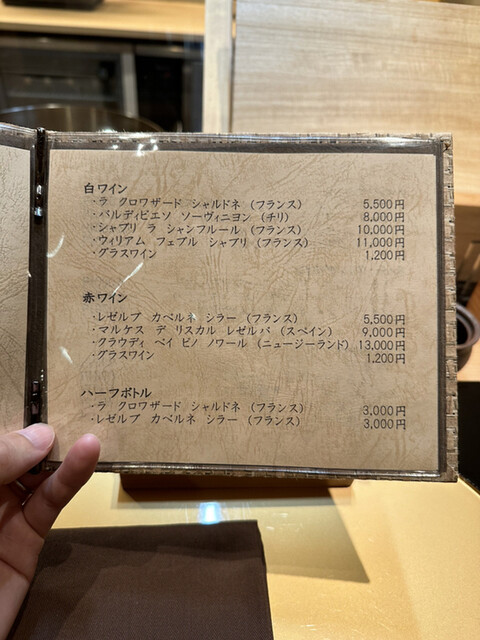 白ワイン
・ラ クロワザード シャルドネ (フランス) 5,500円
・バルディビエソ ソーヴィニヨン (チリ) 8,000円
・シャブリ ラ シャンフルール (フランス) 10,000円
・ウィリアム フェブル シャブリ (フランス) 11,000円
・グラスワイン 1,200円
赤ワイン
・レゼルブ カベルネ シラー (フランス) 5,500円
・マルケス デ リスカル レゼルバ (スペイン) 9,000円
・クラウディ ベイ ピノ ノワール (ニュージーランド) 13,000円
・グラスワイン 1,200円
ハーフボトル
・ラ クロワザード シャルドネ (フランス) 3,000円
・レゼルブ カベルネ シラー (フランス) 3,000円